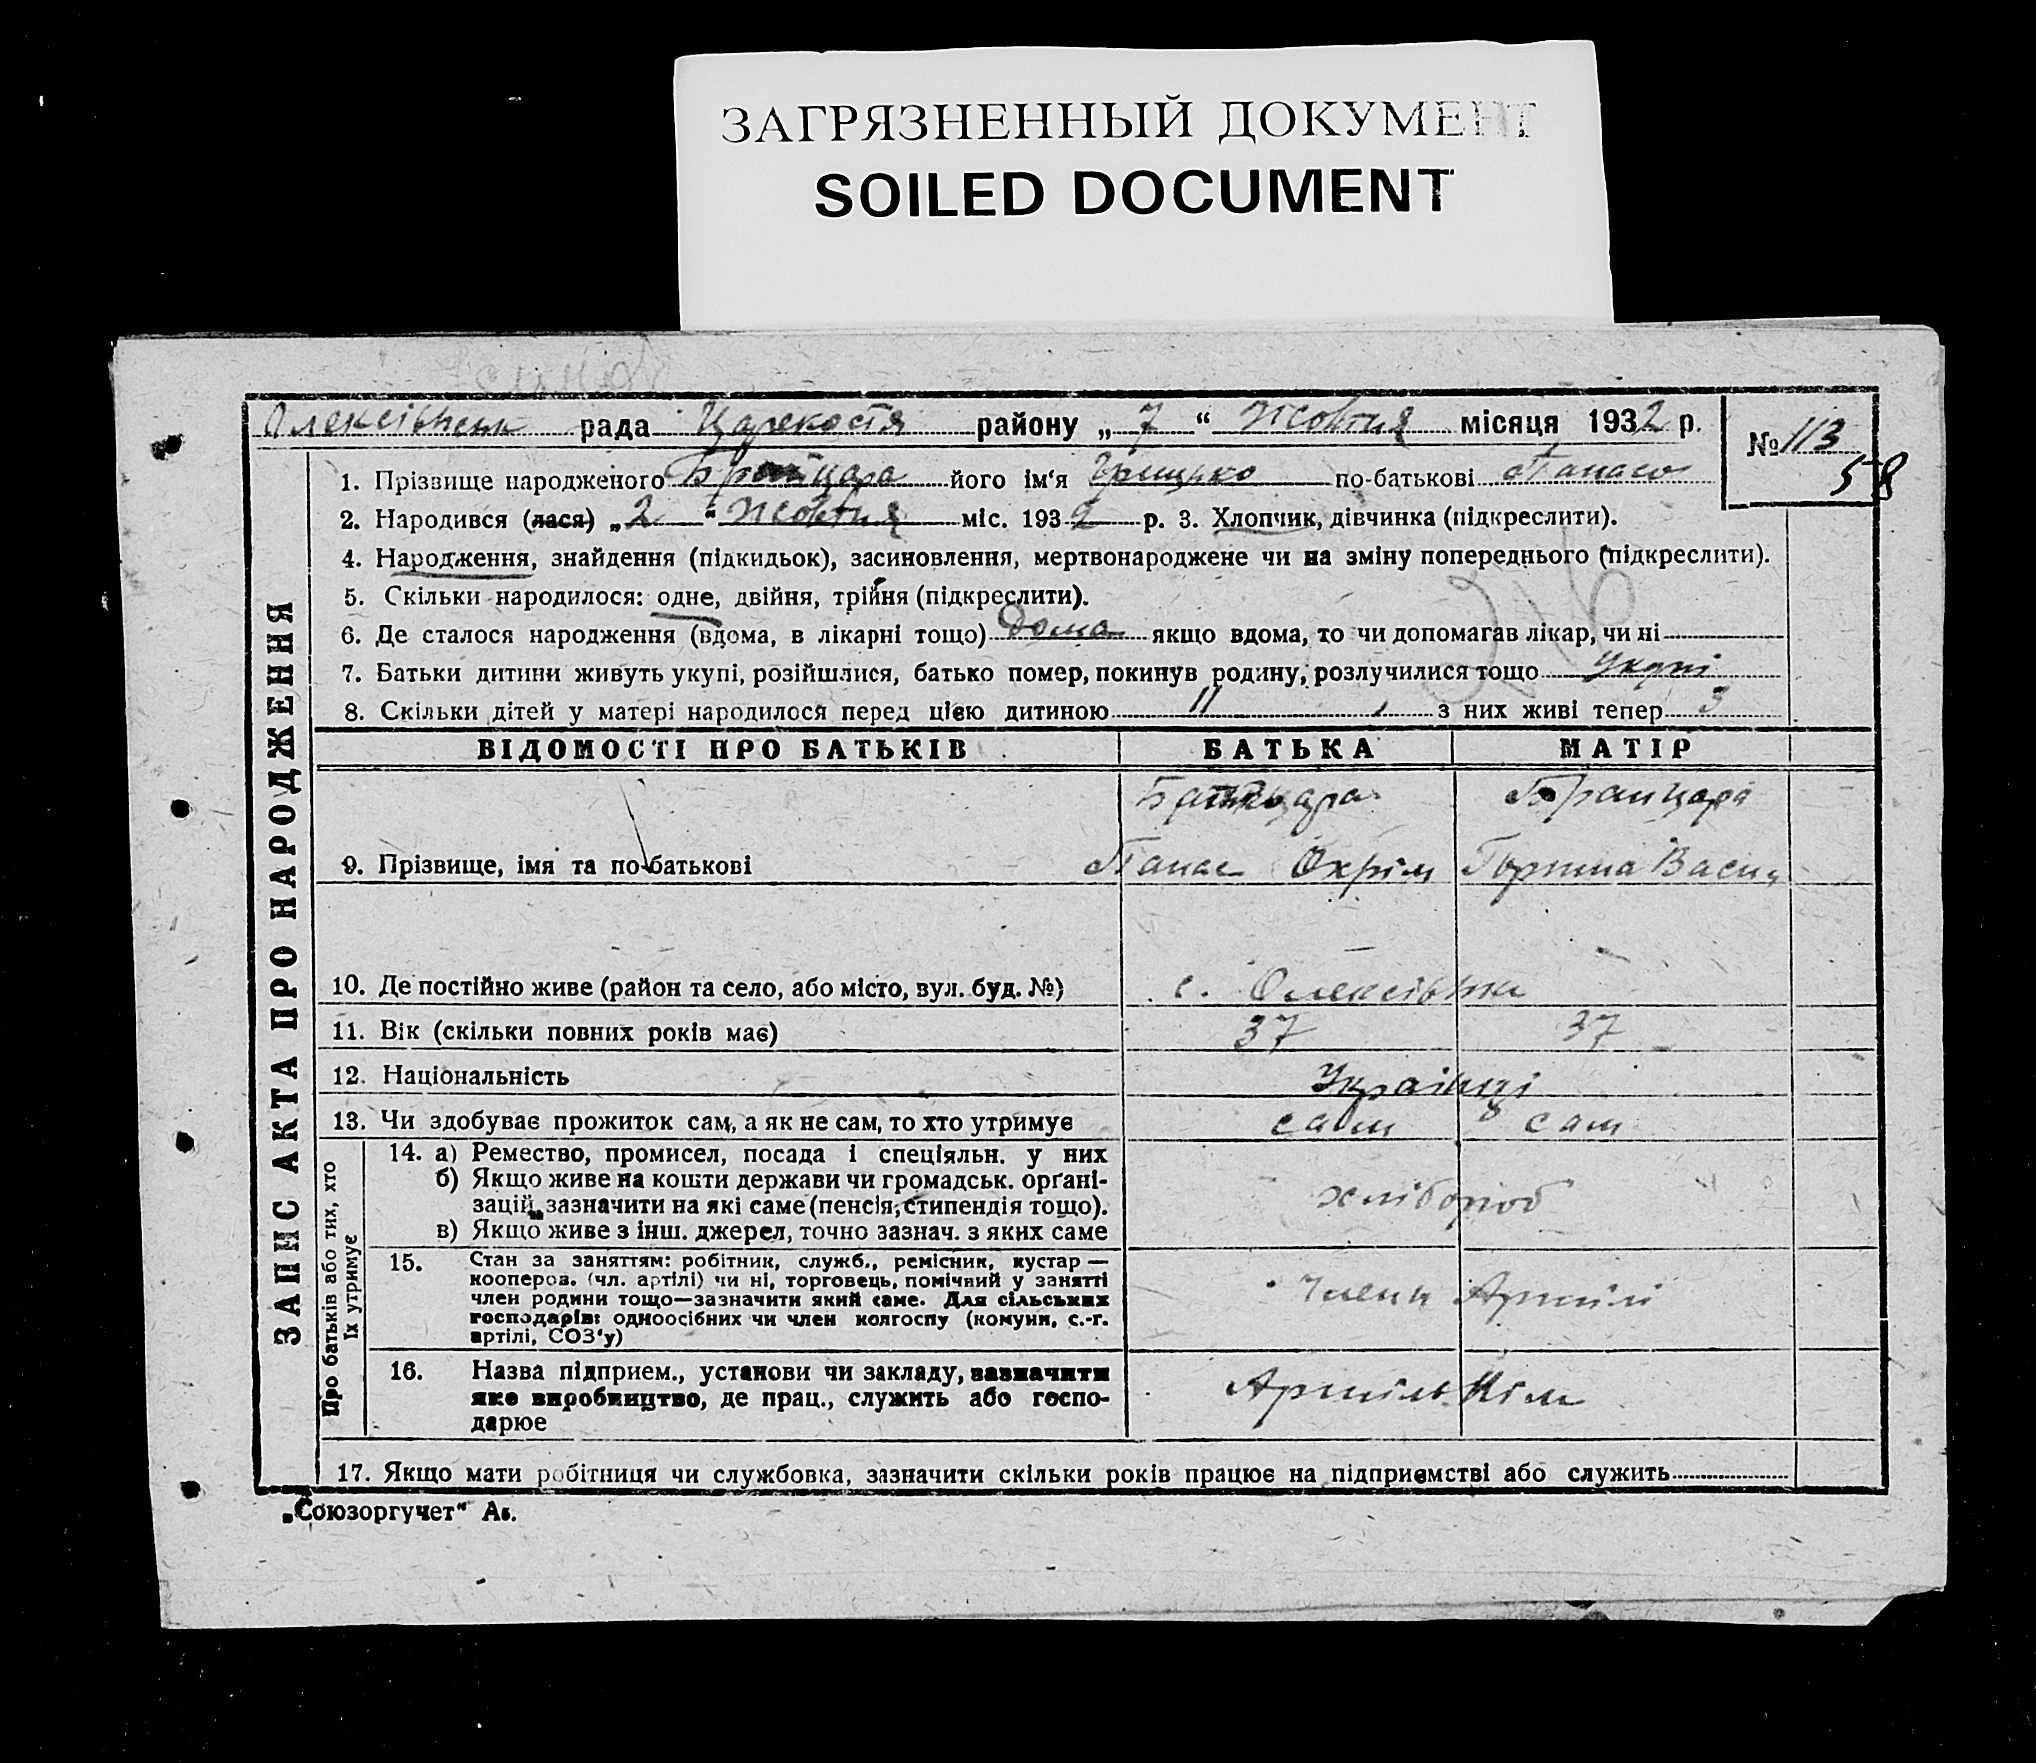 ЗАГРЯЗНЕННЫЙ ДОКУМЕНТ
SOILED DOCUMENT
Олексівськ рада району „ 7 “ Жовтня місяця 1932 р.
№ 113
58
1. Прізвище народженого його ім‘я Грицько по-батькові Панасо
2. Народився (лася) „ 2 “ Жовтня міс. 1932 р. 3. Хлопчик, дівчинка (підкреслити).
4. Народження, знайдення (підкидьок), засиновлення, мертвонароджене чи на зміну попереднього (підкреслити).
5. Скільки народилося: одне, двійня, трійня (підкреслити).
6. Де сталося народження (вдома, в лікарні тощо) Дома якщо вдома, то чи допомагав лікар, чи ні
7. Батьки дитини живуть укупі, розійшлися, батько помер, покинув родину, розлучилися тощо Укупі
8. Скільки дітей у матері народилося перед цією дитиною 11 з них живі тепер 3
ВІДОМОСТІ ПРО БАТЬКІВ БАТЬКА МАТІР
Бранцара
9. Прізвище, імя та по батькові Панас Охрім Васи
10. Де постійно живе (район та село, або місто, вул. буд. №) с. Олексівка
11. Вік (скільки повних років має) 37 37
12. Національність Українці
13. Чи здобуває прожиток сам, а як не сам, то хто утримує сам сам
14. а) Ремество, промисел, посада і спеціяльн. у них
б) Якщо живе на кошти держави чи громадськ. орґані-
зацій, зазначити на які саме (пенсія, стипендія тощо). хлібороб
в) Якщо живе з інш. джерел, точно зазнач. з яких саме
15. Стан за заняттям: робітник, служб., ремісник, кустар —
кооперов. (чл. артілі) чи ні, торговець, помічний у занятті
член родини тощо—зазначити який саме. Для сільських Член Артілі
господарів: одноосібних чи член колгоспу (комуни, с.-г.
артілі, СОЗ‘у)
16. Назва підприєм., установи чи закладу, зазначити
яке виробництво, де прац., служить або госпо- Артіль Кім
дарює
17. Якщо мати робітниця чи службовка, зазначити скільки років працює на підприємстві або служить
ЗАПИС АКТА ПРО НАРОДЖЕННЯ
Про батьків або тих, хто
їх утримує
„Союзоргучет“ Ав.